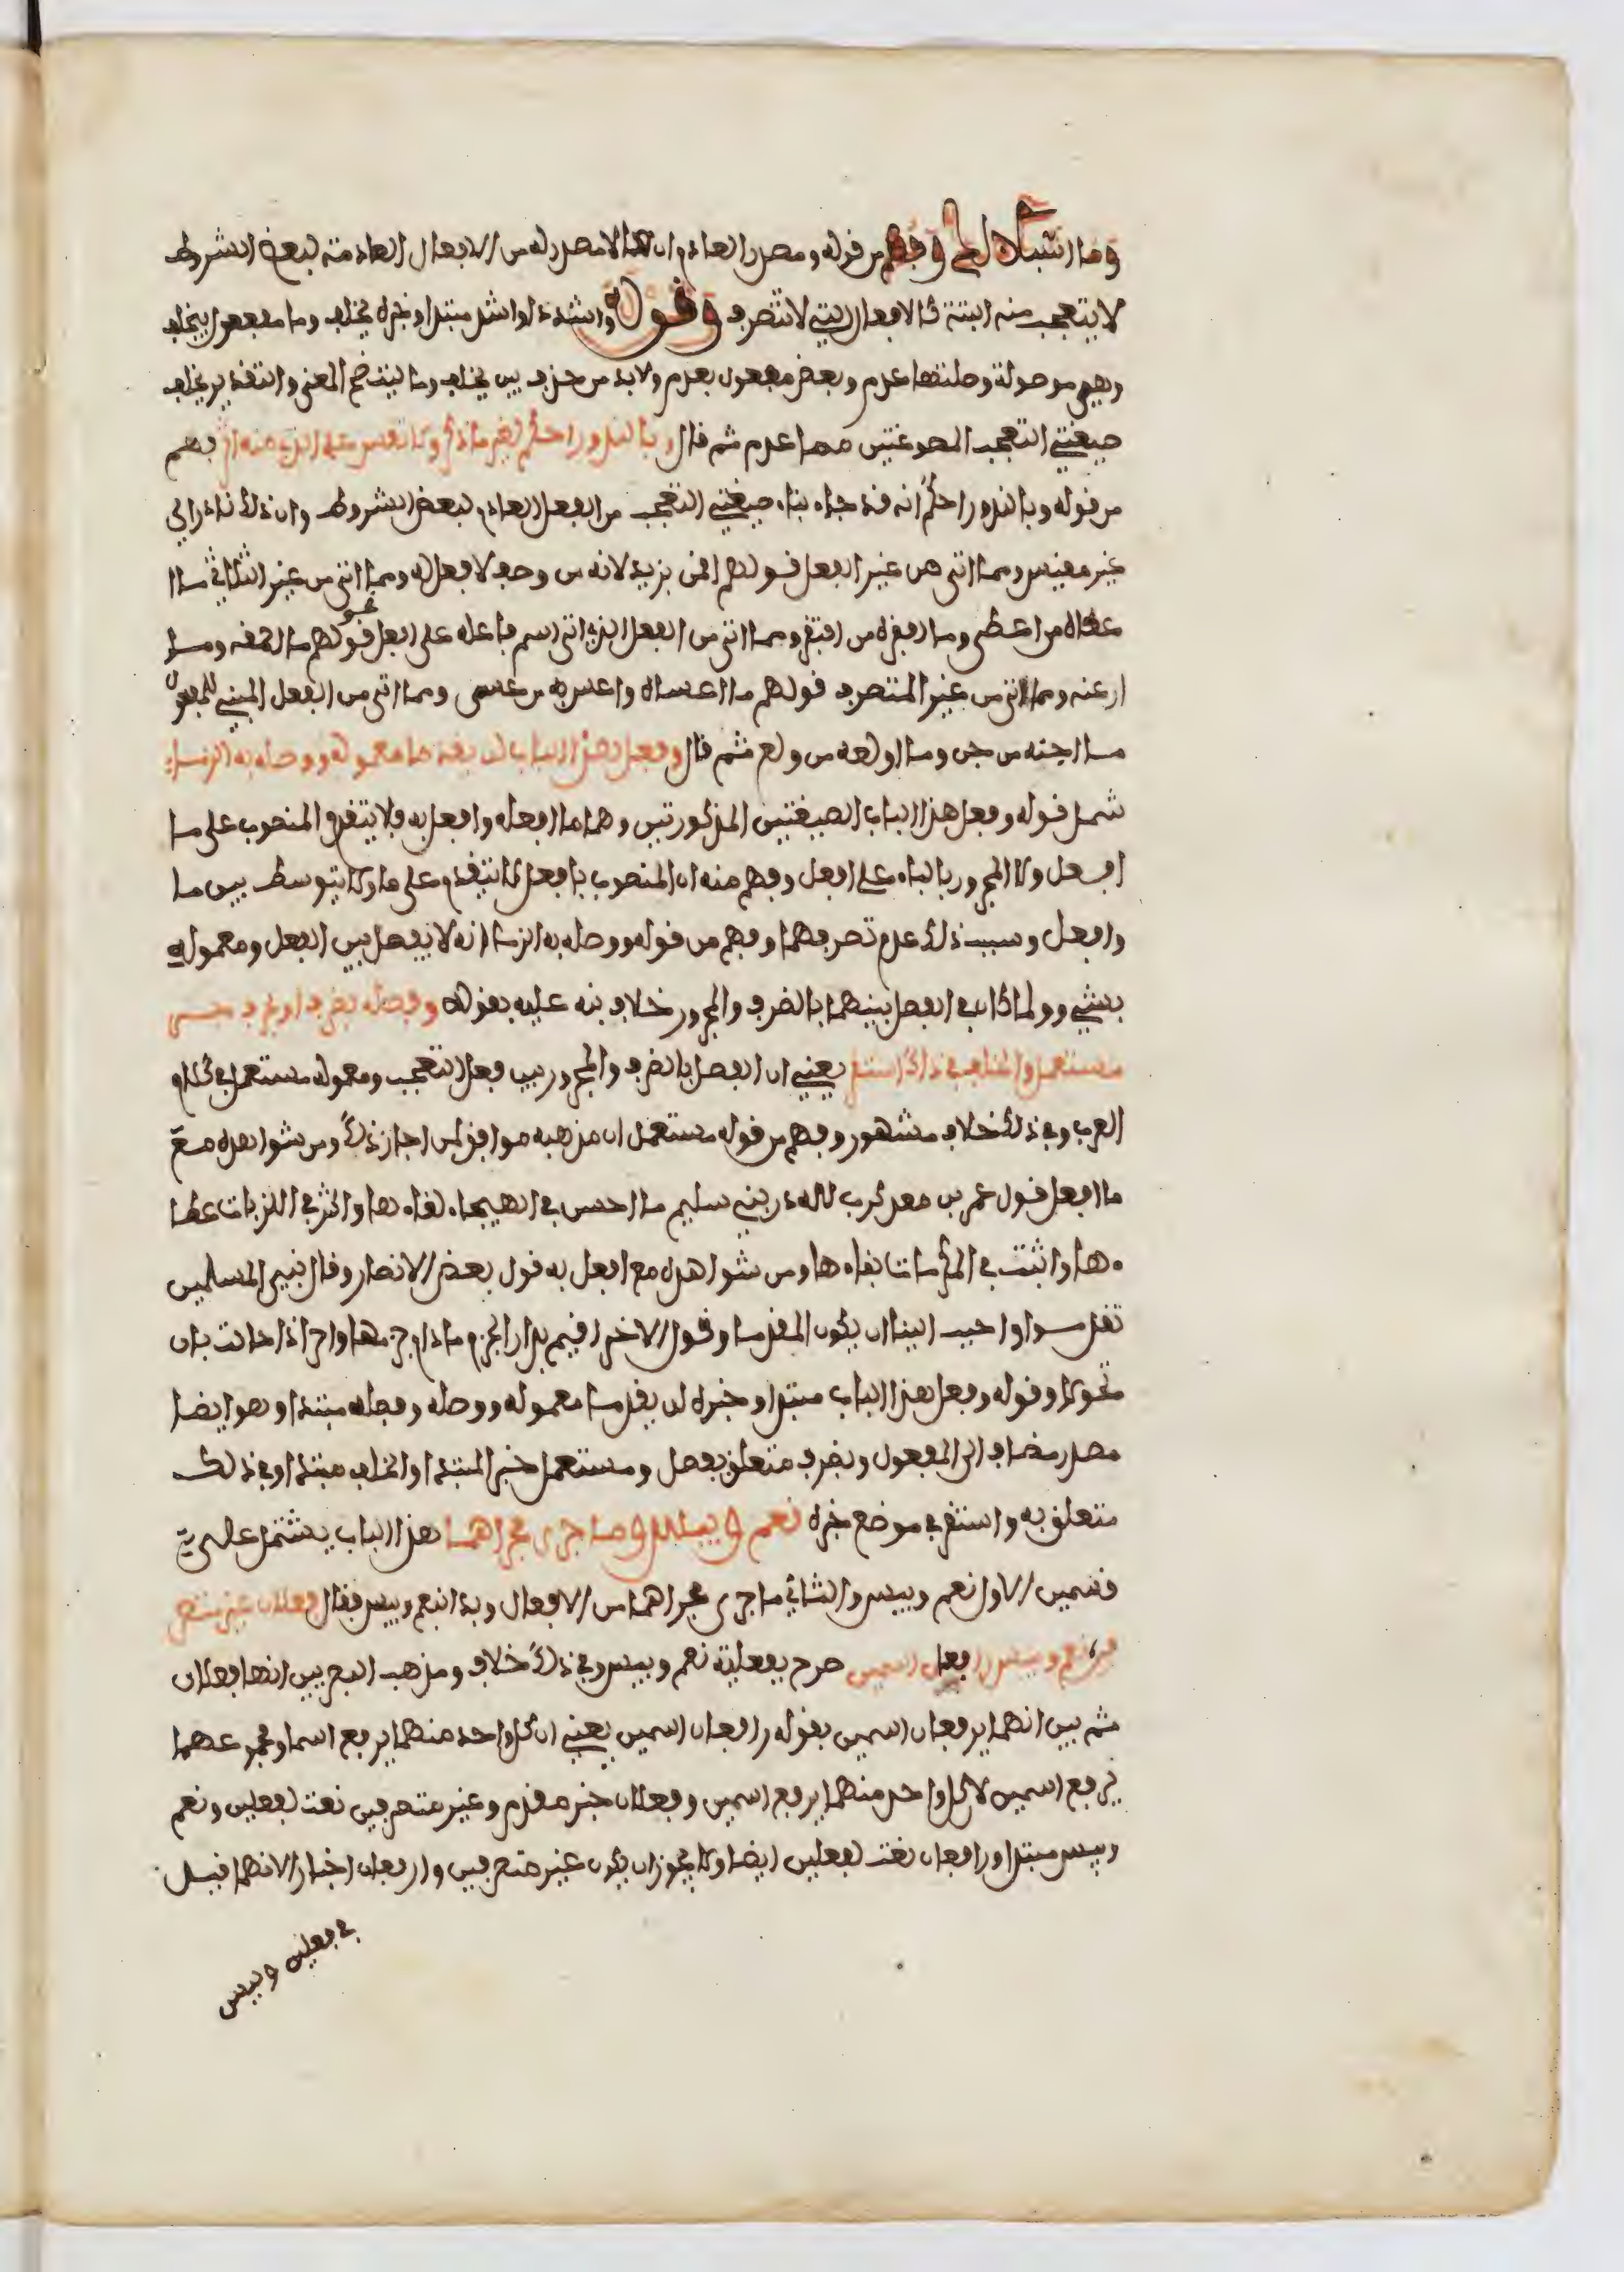 وما اشبه ذلك وفهم من قوله ومصدر العادم ان ما لا مصدر له من الافعال العادمة لبعض الشروط
لا يتعجب منه البتة كالافعال التي لا تتصرف وقوله واشدد او اشد مبتدا وخبره يخلف وما مفعول بيخلف
وهي موصولة وصلتها عدم وبعض مفعول بعدم ولا بد من حذف بين يخلف وما ليتضح المعنى والتقدير يخلف
صيغتي التعجب المصوغتين مما عدم ثم قال وبالندور احكم لغير ما ذكر ولا تقس على الذي منه اثر بهم
من قوله وبالندور احكم انه قد جاء بناء صيغتي التعجب من الفعل العادم لبعض الشروط وان ذلك نادر اي
غير مقيس ومما اتى من غير الفعل قولهم اقمن بزيد لانه من وصف لا فعل له ومما اتى من غير الثلاثي ما ا
عطاه من اعطى وما افقره من افتقر ومما اتى من الفعل الذي اتى اسم فاعله على افعل نحو قولهم ما احمقه وما
ارعنه ومما اتى من غير المتصرف قولهم ما اعساه واعس به من عسى ومما اتى من الفعل المبني للمفعول
ما اجنه من جن وما اولعه من ولع ثم قال وفعل هذا الباب لن يقدما معموله ووصله به الزما
شمل قوله وفعل هذا الباب الصيغتين المذكورتين وهما ما افعله وافعل به فلا يتقدم المنصوب على ما
افعل ولا المجرور بالباء على افعل وفهم منه ان المنصوب بافعل لا يتقدم على ما ولا يتوسط بين ما
وافعل وسبب ذلك عدم تصرفهما وفهم من قوله ووصله به الزما انه لا يفصل بين الفعل ومعموله
بشيء ولما كان في الفصل بينهما بالظرف والمجرور خلاف نبه عليه بقوله وفصله بظرف او بحرف جر
مستعمل والخلف في ذاك استقر يعني ان الفصل بالظرف والمجرور بين فعل التعجب ومعموله مستعمل في كلام
العرب وفي ذلك خلاف مشهور وفهم من قوله مستعمل ان مذهبه موافق لمن اجاز ذلك ومن شواهده مع
ما افعل قول عمر بن معد كرب لله در بني سليم ما احسن في الهيجاء لقاءها واكثر في اللزبات عطا
ءها واثبت في المكرمات بقاءها ومن شواهده مع افعل به قول بعض الانصار وقال نبي المسلمين
تقدموا واحبب الينا ان يكون المقدما وقول الاخر اقيم بدار الحزم ما دام حزمها واحر اذا حالت بان
نتحولا وقوله وفعل هذا الباب مبتدا وخبره لن يقدما معموله ووصله وفصله مبتدا وهو ايضا
مصدر مضاف الى المفعول وبظرف متعلق بفصل ومستعمل خبر المبتدا والخلف مبتدا وفي ذلك
متعلق به واستقر في موضع خبره نعم وبيس وما جرى مجراهما هذا الباب يشتمل على
قسمين الاول نعم وبيس والثاني ما جرى مجراهما من الافعال وبدا بنعم وبيس فقال فعلان غير متصر
فين نعم وبيس رافعان اسمين صرح بفعلية نعم وبيس وفي ذلك خلاف ومذهب البصريين انهما فعلان
ثم بين انهما يرفعان اسمين بقوله رافعان اسمين يعني ان كل واحد منهما يرفع اسما ومجموعهما
يرفع اسمين لا كل واحد منهما يرفع اسمين وفعلان خبر مقدم وغير متصرفين نعت لفعلين ونعم
وبيس مبتدا ورافعان نعت لفعلين ايضا ولا يجوز ان يكون غير متصرفين ورافعان اخبارا لانهما قيد
في فعلين وبيس